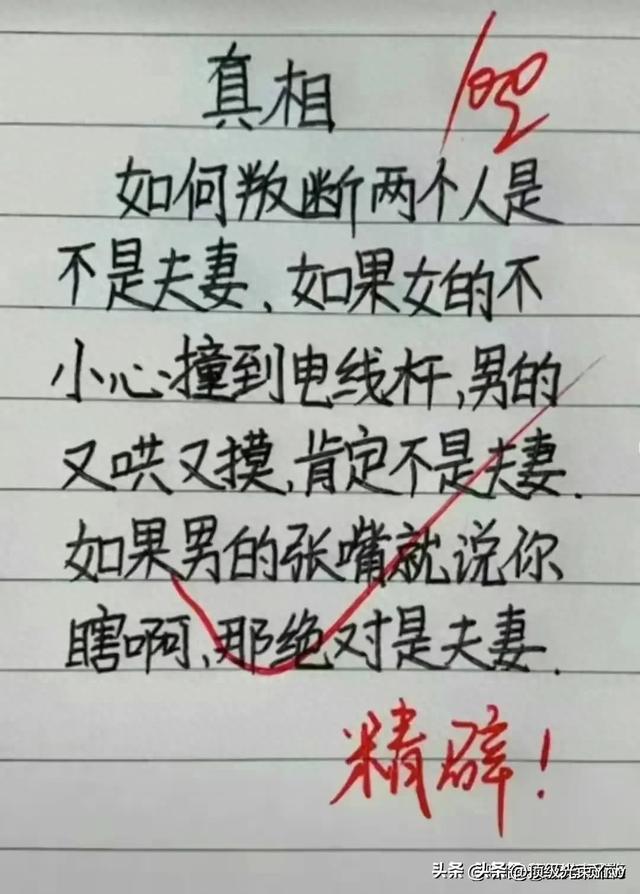 真相
100
如何判断两个人是
不是夫妻、如果女的不
小心撞到电线杆,男的
又哄又摸,肯定不是夫妻.
如果男的张嘴就说你
瞎啊,那绝对是夫妻.
精辟!
头条